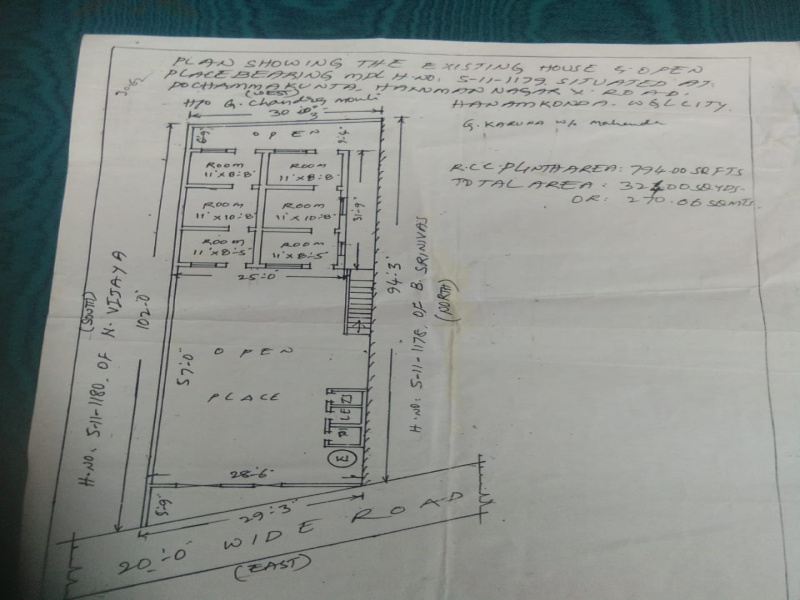 PLAN SHOWING THE EXISTING HOUSE & OPEN
PLACE BEARING MPL H.NO: 5-11-1179, SITUATED AT:
POCHAMMAKUNTA, HANUMAN NAGAR X. ROAD.
HANAMKONDA. WGL CITY.
(WEST)
H/O G. Chandra mouli
30'.0"
G. KARUNA W/o
R.C.C. PLINTH AREA: 794.00 SQ.FTS
TOTAL AREA: .00 SQ.YDS.
OR: 270.06 SQ.MTS.
6'.9"
OPEN
ROOM
11'X8'.8"
ROOM
11'X8'.8"
ROOM
11'X10'.8"
ROOM
11'X10'.8"
ROOM
11'X8'.5"
ROOM
11'X8'.5"
31'.9"
25'.0"
(SOUTH)
H.NO: 5-11-1180. OF N. VIJAYA
102'.0"
94'.3"
H.NO: 5-11-1178. OF B. SRINIVAS
(NORTH)
57'.0"
OPEN
PLACE
28'.6"
5'.9"
29'.3"
20'.0" WIDE ROAD
(EAST)